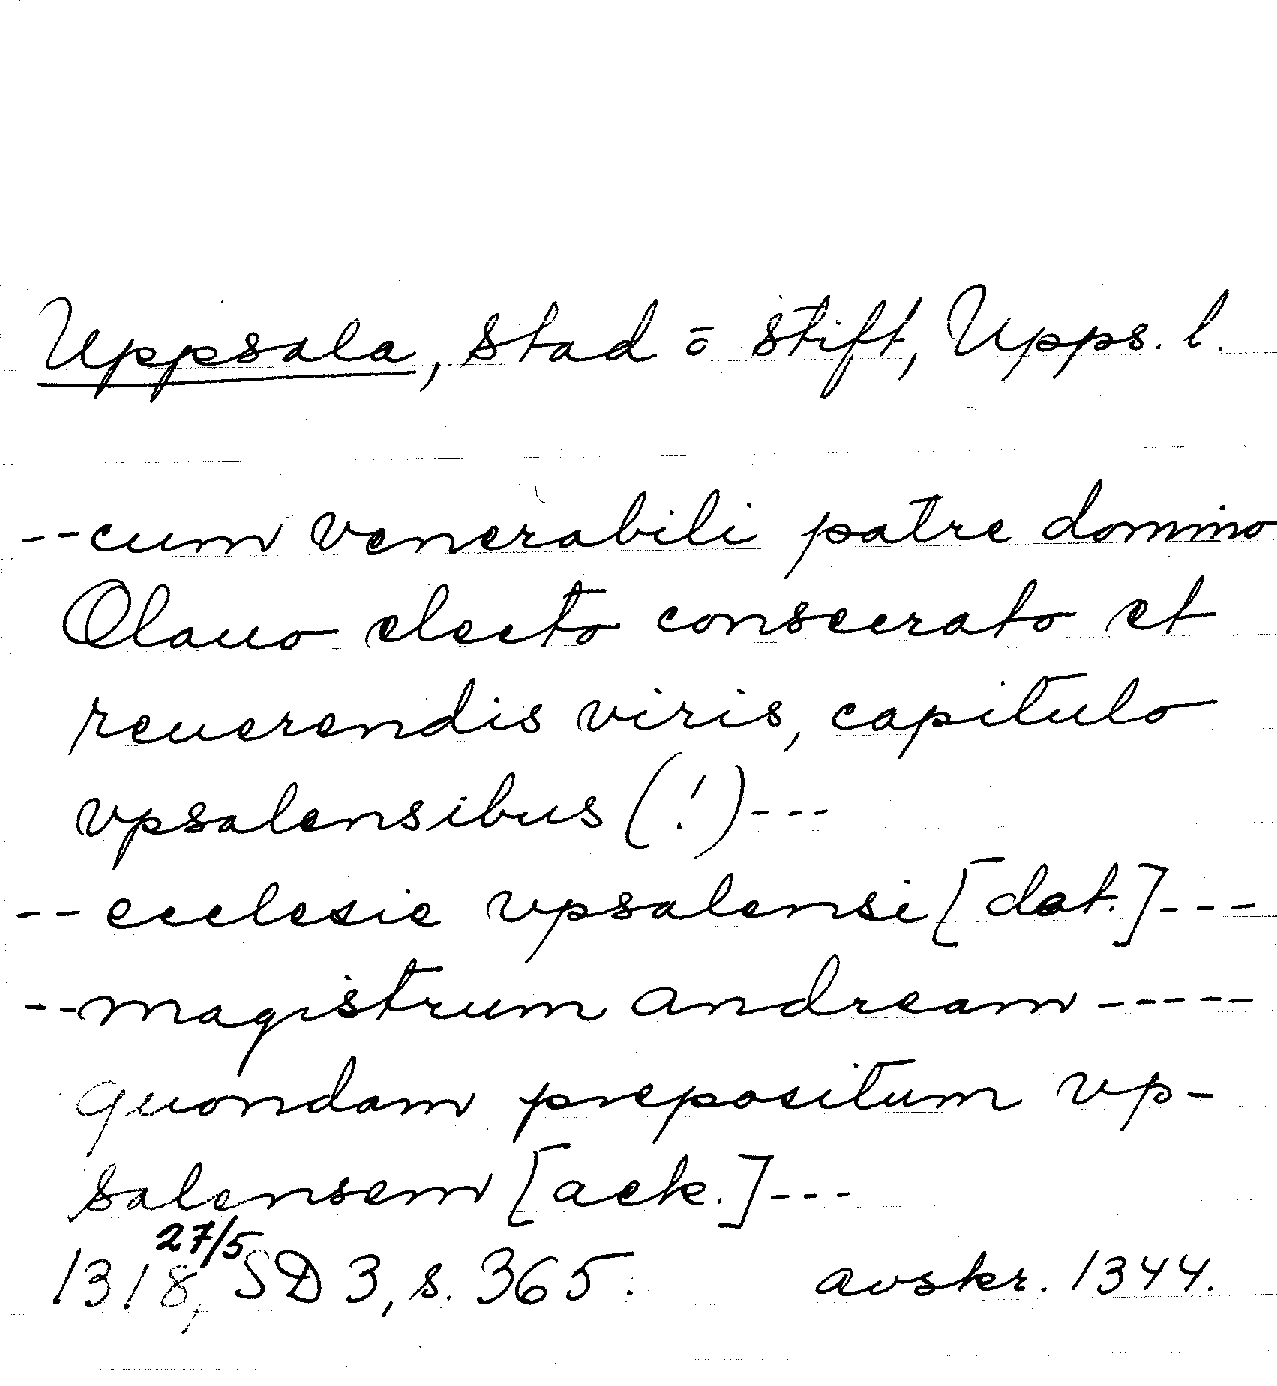 Uppsala, stad o stift, Upps. l.
--cum venerabili patre domino
Olauo electo consecrato et
reuerendis viris, capitulo
vpsalensibus (!)---
-- ecclesie vpsalensi [dat.]---
--magistrum andream-----
quondam prepositum vp-
salensem [ack.]---
1318 27/5, SD 3, s. 365. avskr. 1344.